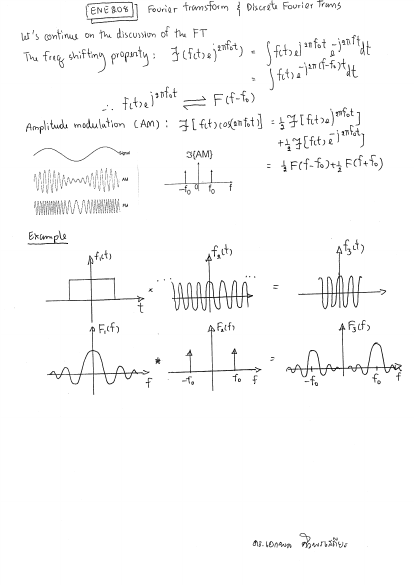 ENE 208 Fourier transform & Discrete Fourier Trans
Let's continue on the discussion of the FT
The freq shifting property: ℱ(f(t)e^{j2πf₀t}) = ∫f(t)e^{j2πf₀t}e^{-j2πft}dt
= ∫f(t)e^{-j2π(f-f₀)t}dt
∴ f(t)e^{j2πf₀t} ⇌ F(f-f₀)
Amplitude modulation (AM): ℱ[f(t)cos(2πf₀t)] = ½ℱ[f(t)e^{j2πf₀t}]
+½ℱ[f(t)e^{-j2πf₀t}]
= ½F(f-f₀)+½F(f+f₀)
Signal
AM
FM
ℱ{AM}
-f₀ 0 f₀ f
Example
f₁(t) × ... f₂(t) ... = f₃(t)
t
F₁(f) * F₂(f) = F₃(f)
f -f₀ f₀ f -f₀ f₀ f